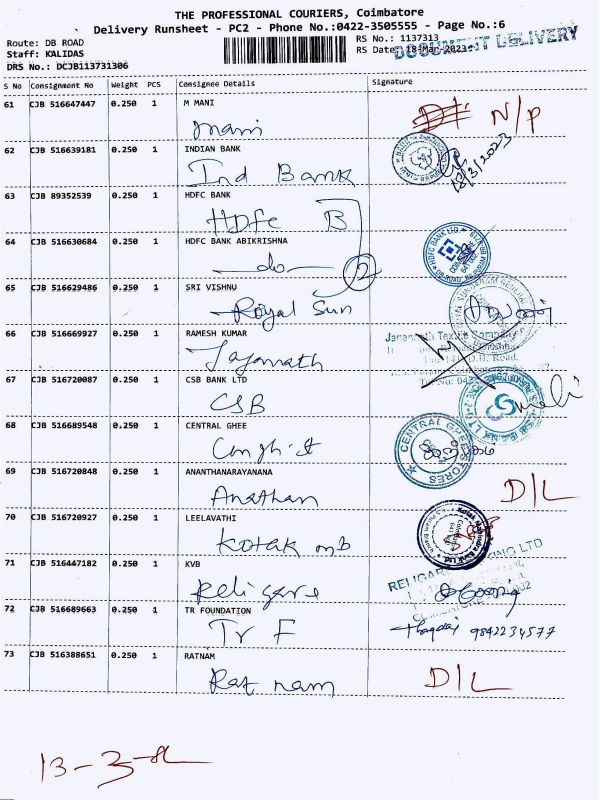 THE PROFESSIONAL COURIERS, Coimbatore
Delivery Runsheet - PC2 - Phone No.:0422-3505555 - Page No.:6
Route: DB ROAD RS No.: 1137313
Staff: KALIDAS RS Date: 18-Mar-2023
DOCUMENT DELIVERY
DRS No.: DCJB113731306
S No Consignment No Weight PCS Consignee Details Signature
61 CJB 516647447 0.250 1 M MANI
mani N/P
62 CJB 516639181 0.250 1 INDIAN BANK
Ind Bank 18/3/2023
63 CJB 89352539 0.250 1 HDFC BANK
HDFC B
64 CJB 516630684 0.250 1 HDFC BANK ABIKRISHNA
do 2
HDFC BANK LTD.
65 CJB 516629486 0.250 1 SRI VISHNU
Royal Sun
66 CJB 516669927 0.250 1 RAMESH KUMAR
Jagannath
Textile Company
D.B. Road.
67 CJB 516720087 0.250 1 CSB BANK LTD
CSB
68 CJB 516689548 0.250 1 CENTRAL GHEE
CENTRAL GHEE STORES
69 CJB 516720848 0.250 1 ANANTHANARAYANANA
Ananthan D/L
70 CJB 516720927 0.250 1 LEELAVATHI
Kotak mb
Kotak Mahindra Bank Ltd.
71 CJB 516447182 0.250 1 KVB
Religare
72 CJB 516689663 0.250 1 TR FOUNDATION
Tr F 9842234577
73 CJB 516388651 0.250 1 RATNAM
Rat nam D/L
13-3-